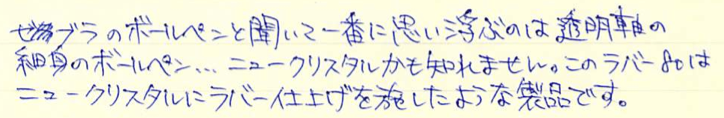 ゼブラのボールペンと聞いて一番に思い浮ぶのは透明軸の
細身のボールペン...ニュークリスタルかも知れません。このラバー80は
ニュークリスタルにラバー仕上げを施したような製品です。